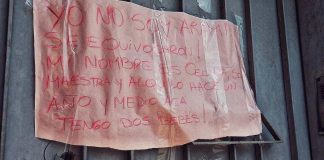 YO NO SOY
SE EQUIVOCARON!
MI NOMBRE ES CELESTE
MAESTRA Y ALQUILO HACE UN
AÑO Y MEDIO ACA
TENGO DOS BEBES!